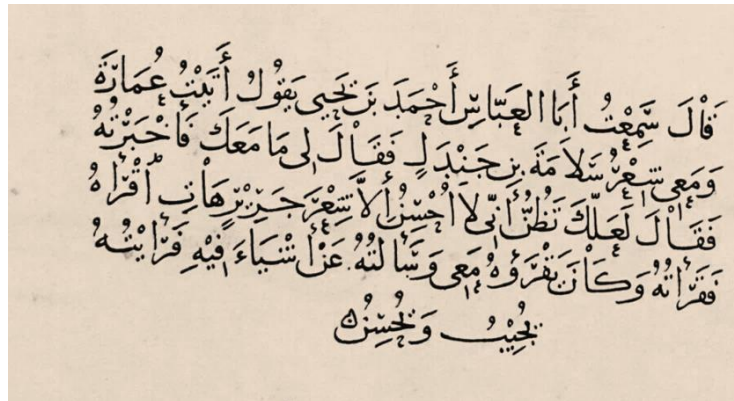 قَالَ سَمِعْتُ أَبَا الْعَبَّاسِ أَحْمَدَ بْنَ يَحْيَى يَقُولُ أَتَيْتُ عُمَارَةَ
وَمَعِي شِعْرُ سَلَامَةَ بْنِ جَنْدَلٍ فَقَالَ لِي مَا مَعَكَ فَأَخْبَرْتُهُ
فَقَالَ لَعَلَّكَ تَظُنُّ أَنِّي لَا أُحْسِنُ أَلَّا شِعْرَ جَرِيْرٍ هَاتِ أَقْرَأهُ
فَقَرَأْتُهُ وَكَانَ يَقْرَؤُهُ مَعِي وَسَأَلْتُهُ عَنْ أَشْيَاءَ فِيْهِ فَرَأَيْتُهُ
يُجِيْبُ وَيُحْسِنُ